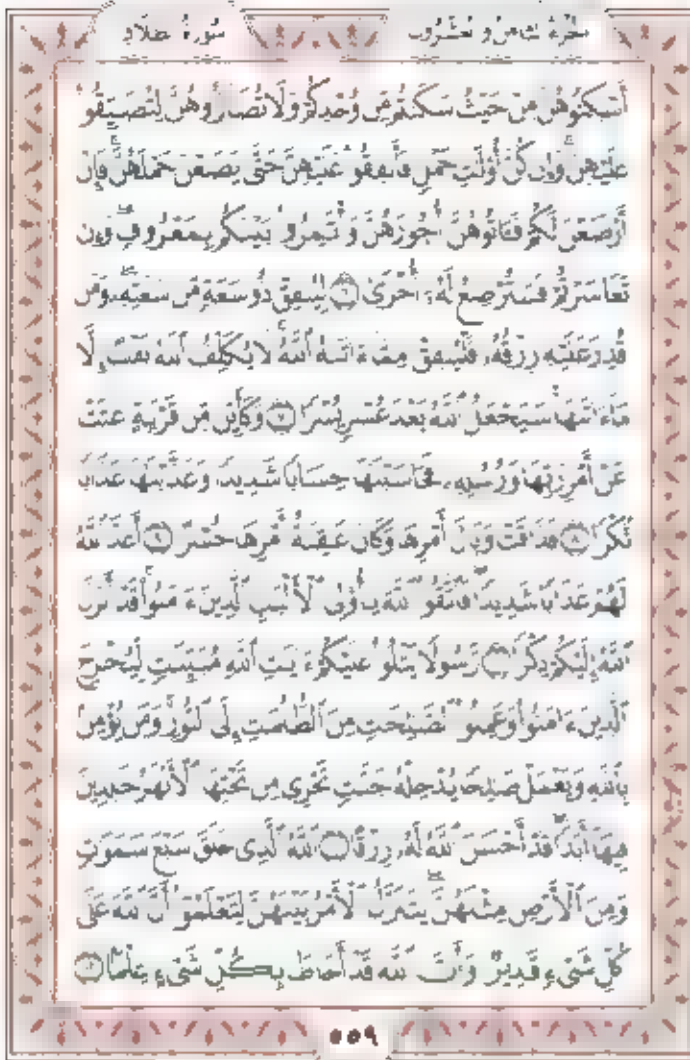 سُورَةُ الطَّلَاقِ الجُزْءُ الثَّامِنُ وَالعِشْرُونَ
أَسْكِنُوهُنَّ مِنْ حَيْثُ سَكَنتُم مِّن وُجْدِكُمْ وَلَا تُضَآرُّوهُنَّ لِتُضَيِّقُوا۟
عَلَيْهِنَّ ۚ وَإِن كُنَّ أُو۟لَٰتِ حَمْلٍ فَأَنفِقُوا۟ عَلَيْهِنَّ حَتَّىٰ يَضَعْنَ حَمْلَهُنَّ ۚ فَإِنْ
أَرْضَعْنَ لَكُمْ فَـَٔاتُوهُنَّ أُجُورَهُنَّ ۖ وَأْتَمِرُوا۟ بَيْنَكُم بِمَعْرُوفٍ ۖ وَإِن
تَعَاسَرْتُمْ فَسَتُرْضِعُ لَهُۥٓ أُخْرَىٰ ٦ لِيُنفِقْ ذُو سَعَةٍ مِّن سَعَتِهِۦ ۖ وَمَن
قُدِرَ عَلَيْهِ رِزْقُهُۥ فَلْيُنفِقْ مِمَّآ ءَاتَىٰهُ ٱللَّهُ ۚ لَا يُكَلِّفُ ٱللَّهُ نَفْسًا إِلَّا
مَآ ءَاتَىٰهَا ۚ سَيَجْعَلُ ٱللَّهُ بَعْدَ عُسْرٍ يُسْرًا ٧ وَكَأَيِّن مِّن قَرْيَةٍ عَتَتْ
عَنْ أَمْرِ رَبِّهَا وَرُسُلِهِۦ فَحَاسَبْنَٰهَا حِسَابًا شَدِيدًا وَعَذَّبْنَٰهَا عَذَابًا
نُّكْرًا ٨ فَذَاقَتْ وَبَالَ أَمْرِهَا وَكَانَ عَٰقِبَةُ أَمْرِهَا خُسْرًا ٩ أَعَدَّ ٱللَّهُ
لَهُمْ عَذَابًا شَدِيدًا ۖ فَٱتَّقُوا۟ ٱللَّهَ يَٰٓأُو۟لِى ٱلْأَلْبَٰبِ ٱلَّذِينَ ءَامَنُوا۟ ۚ قَدْ أَنزَلَ
ٱللَّهُ إِلَيْكُمْ ذِكْرًا ١٠ رَّسُولًا يَتْلُوا۟ عَلَيْكُمْ ءَايَٰتِ ٱللَّهِ مُبَيِّنَٰتٍ لِّيُخْرِجَ
ٱلَّذِينَ ءَامَنُوا۟ وَعَمِلُوا۟ ٱلصَّٰلِحَٰتِ مِنَ ٱلظُّلُمَٰتِ إِلَى ٱلنُّورِ ۚ وَمَن يُؤْمِنۢ
بِٱللَّهِ وَيَعْمَلْ صَٰلِحًا يُدْخِلْهُ جَنَّٰتٍ تَجْرِى مِن تَحْتِهَا ٱلْأَنْهَٰرُ خَٰلِدِينَ
فِيهَآ أَبَدًا ۖ قَدْ أَحْسَنَ ٱللَّهُ لَهُۥ رِزْقًا ١١ ٱللَّهُ ٱلَّذِى خَلَقَ سَبْعَ سَمَٰوَٰتٍ
وَمِنَ ٱلْأَرْضِ مِثْلَهُنَّ يَتَنَزَّلُ ٱلْأَمْرُ بَيْنَهُنَّ لِتَعْلَمُوٓا۟ أَنَّ ٱللَّهَ عَلَىٰ
كُلِّ شَىْءٍ قَدِيرٌ وَأَنَّ ٱللَّهَ قَدْ أَحَاطَ بِكُلِّ شَىْءٍ عِلْمًۢا ١٢
٥٥٩